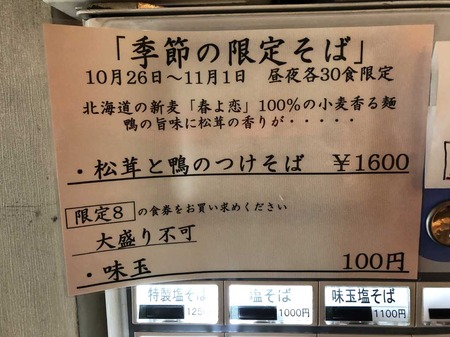 「季節の限定そば」
10月26日～11月1日 昼夜各30食限定
北海道の新麦「春よ恋」100%の小麦香る麺
鴨の旨味に松茸の香りが・・・・・
・松茸と鴨のつけそば ￥1600
限定8 の食券をお買い求めください
大盛り不可
・味玉 100円
特製塩そば 塩そば 味玉塩そば
125 1000円 1100円